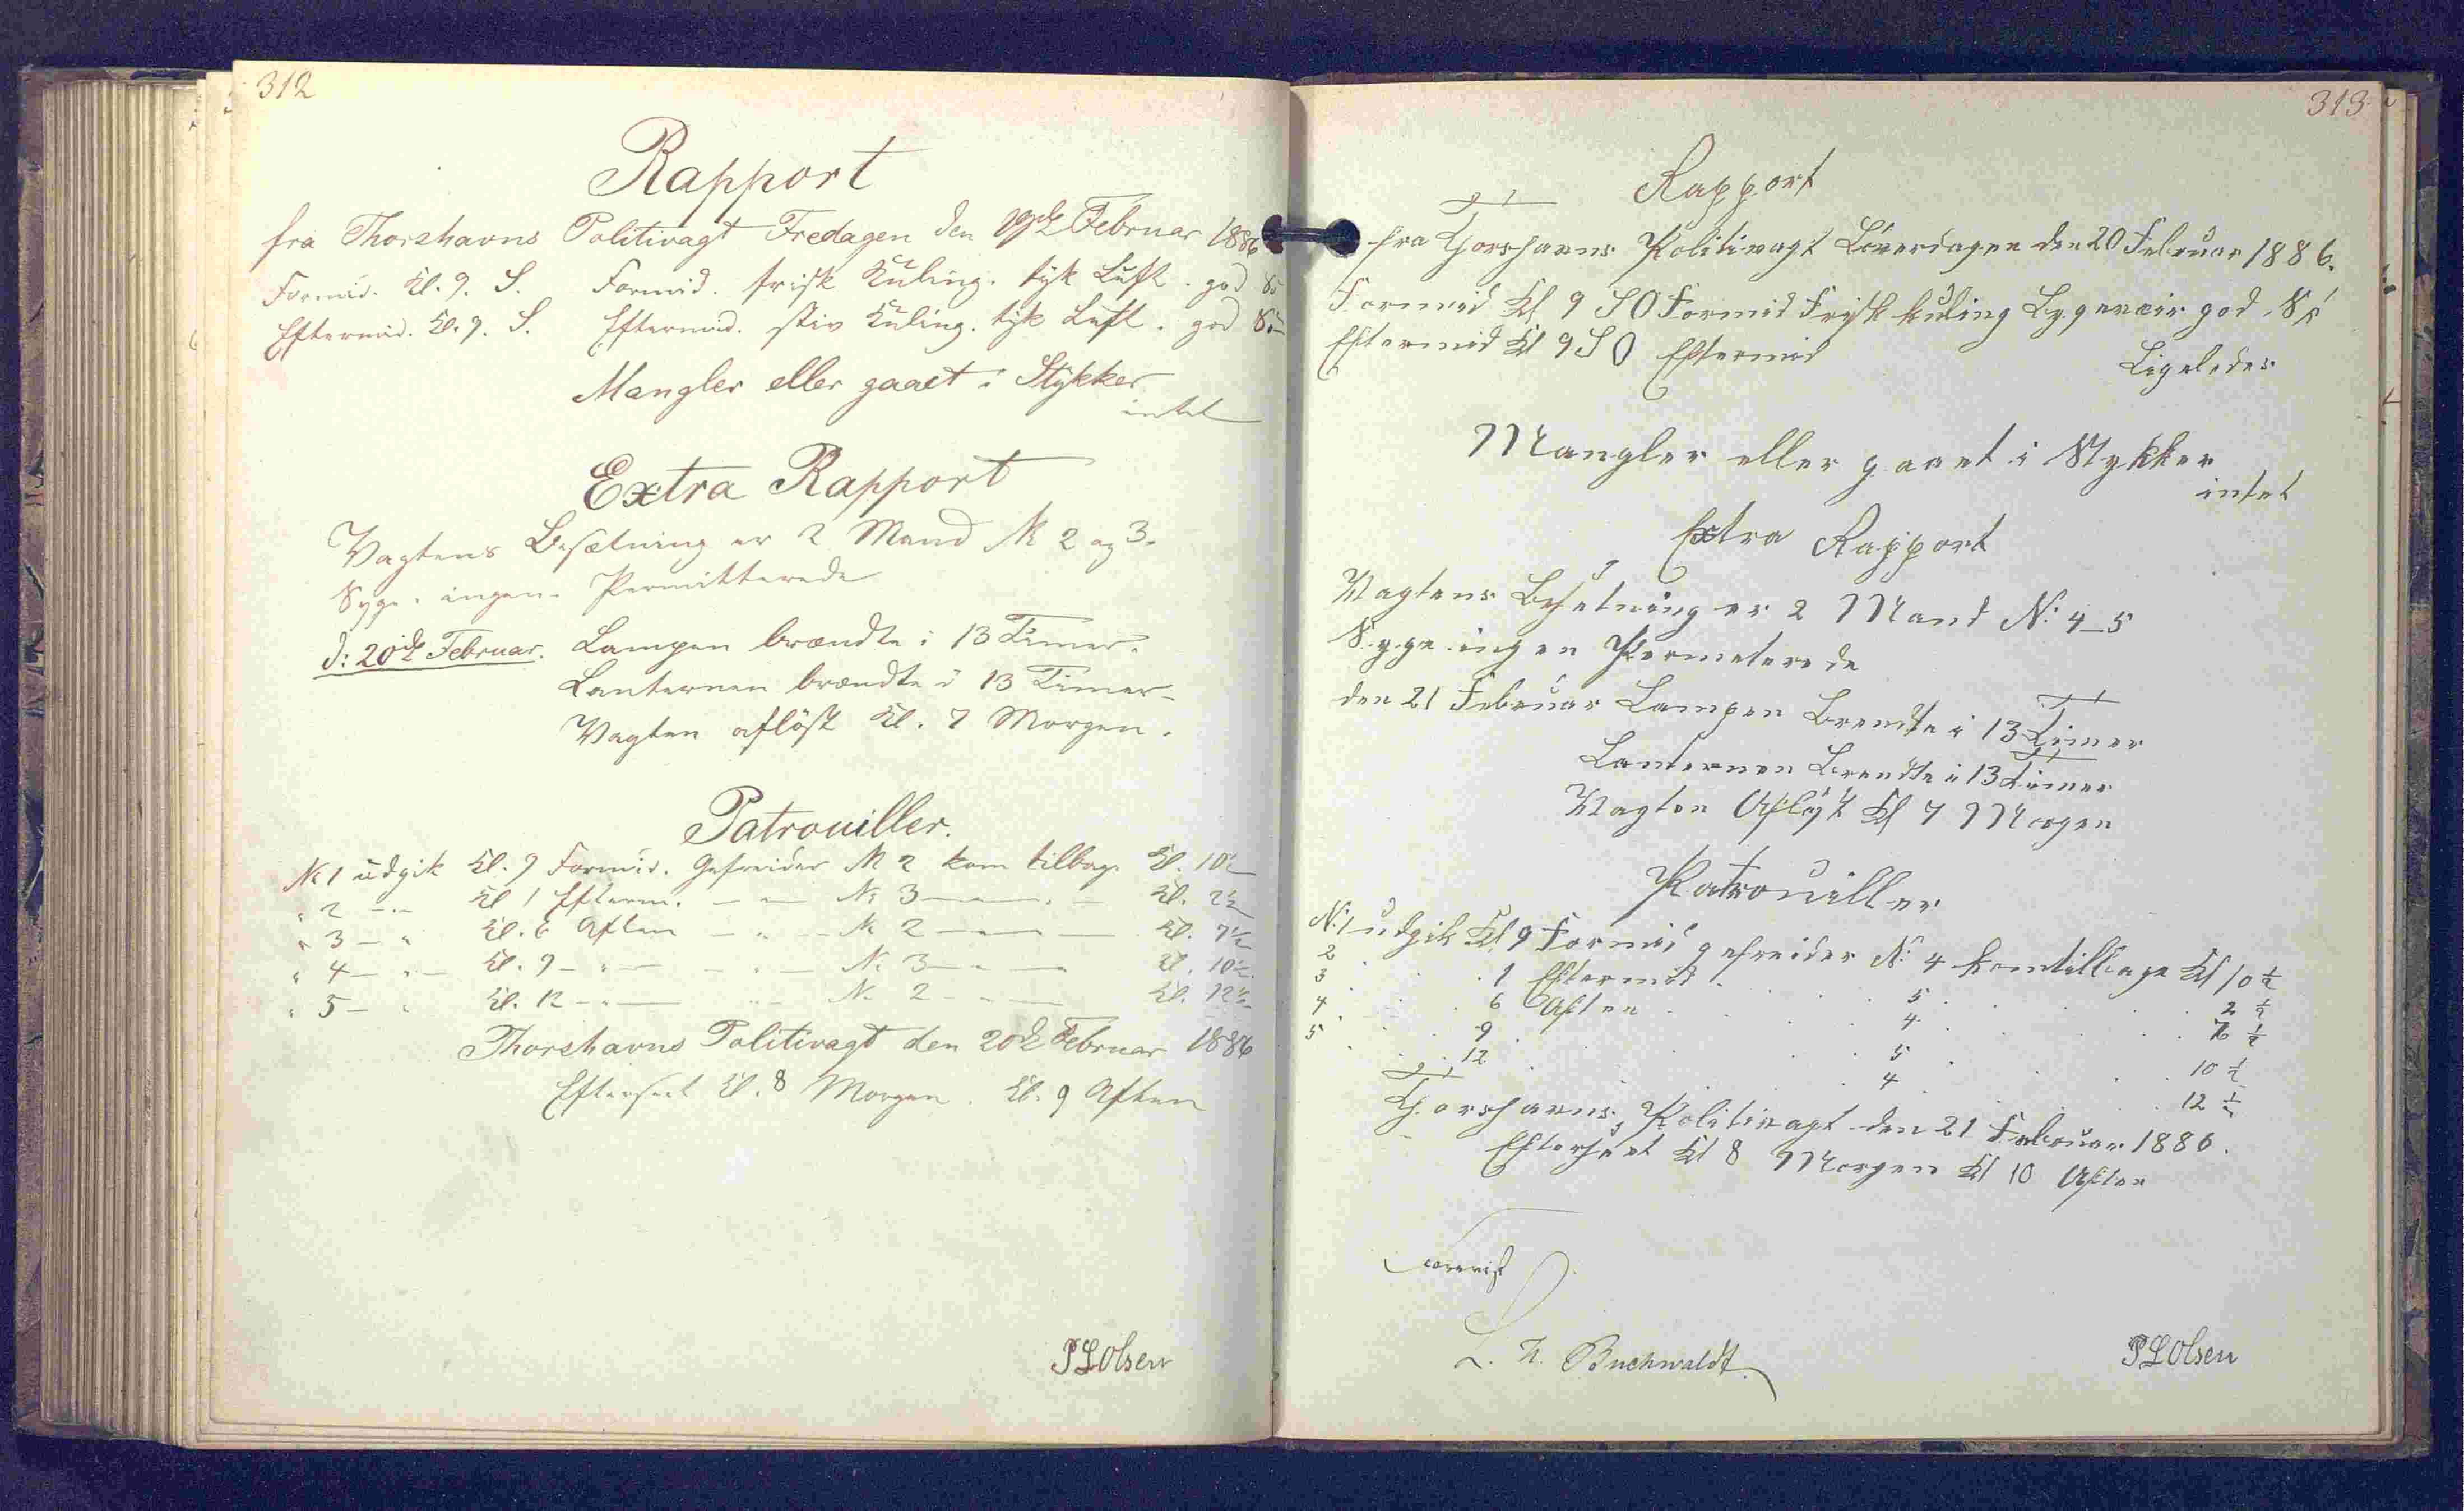 312
Rapport
fra Thorshavns Politivagt Fredagen den 19de Februar 1886
Formid. Kl. 9. S. Formid. frisk Kuling. tyk Luft. god
Eftermid. Kl. 9. S. Eftermid. stiv Kuling. tyk Luft. god
Mangler eller gaaet i Stykker
intet
Extra Rapport
Vagtens Besætning er 2 Mand № 2 og 3.
Syge. ingen. Permitterede
d: 20de Februar. Lampen brændte i 13 Timer.
Lanternen brændte i 13 Timer
Vagten aflöst Kl. 7 Morgen.
Patrouiller.
№ 1 udgik Kl. 9 Formid. Gefreider № 2 kom tilbage Kl. 10½
" 2 — Kl 1 Efterm. — — № 3 — — Kl. 2½
" 3 — " Kl. 6 Aften — " — № 2 — — Kl. 7½
" 4 — " — Kl. 9 — " — — " — № 3 — " — Kl. 10½
" 5 — " Kl. 12 — " — — № 2 — " — Kl. 12½
Thorshavns Politivagt den 20de Februar 1886
Efterseet Kl. 8 Morgen. Kl. 9 Aften
PLOlsen
313
Rapport
fra Thorshavns Politivagt Löverdagen den 20 Februar 1886.
Formid Kl 9 SO Formid Frisk kuling Bygeveir god
Eftermid Kl 9 SO Eftermid Ligeledes
Mangler eller gaaet i Stykker
intet
Extra Rapport
Vagtens Besetning er 2 Mand N: 4–5
Syge ingen Permeterede
den 21 Februar Lampen Brendte i 13 Timer
Lanternen Brendte i 13 Timer
Vagten Aflöst Kl 7 Morgen
Patrouiller
N: 1 udgik Kl 9 Formid gefreider N: 4 komtilbage Kl 10 ½
2 . . 1 Eftermid . . 5 . . 2 ½
3 . . 6 Aften . . 4 . . 7 ½
4 . . 9 . . 5 . . 10 ½
5 . . 12 . . 4 . . 12 ½
Thorshavns Politivagt den 21 Februar 1886.
Efterseet Kl 8 Morgen Kl 10 Aften
Forevist
L. N. Buchwaldt
PLOlsen